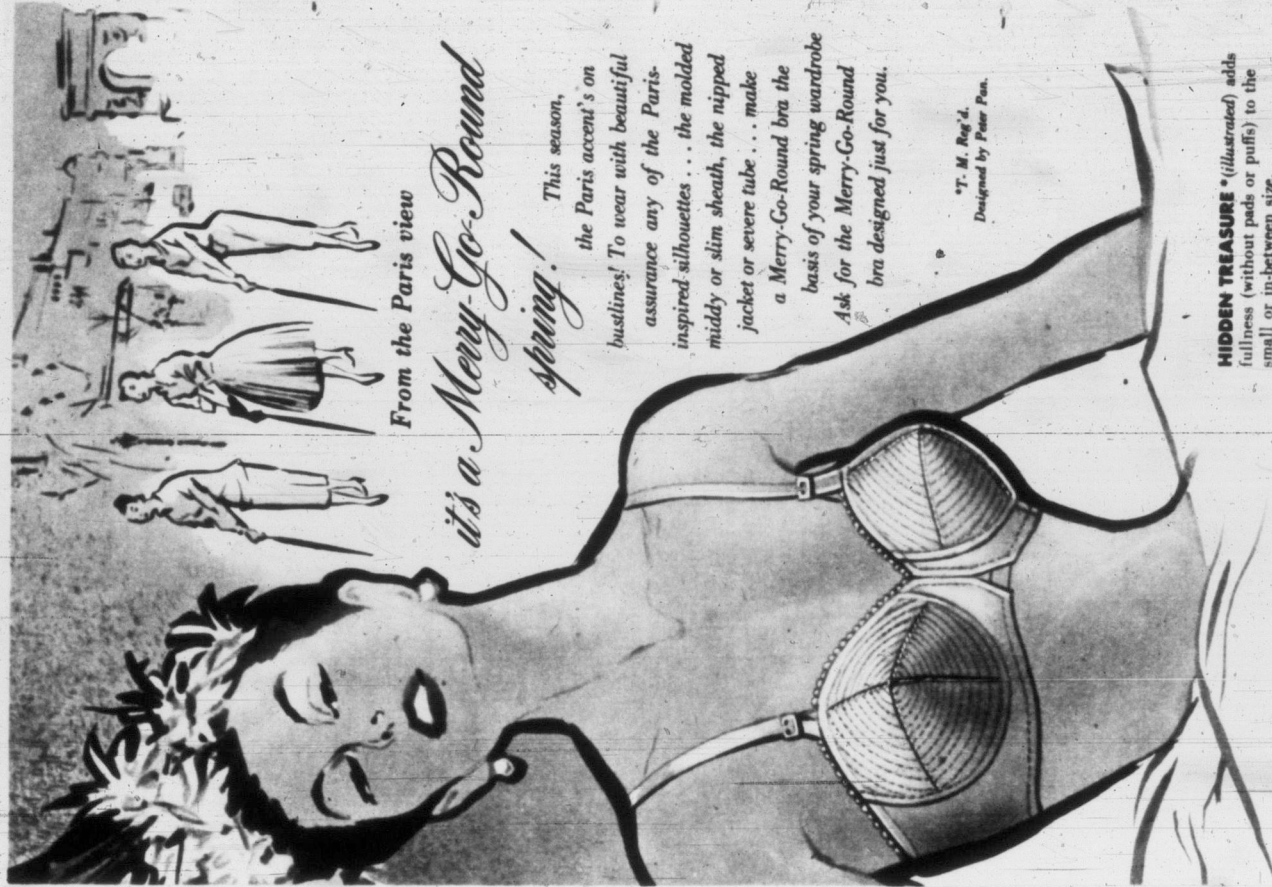 From the Paris view
it's a Merry-Go-Round
spring!
This season,
the Paris accent's on
bustlines! To wear with beautiful
assurance any of the Paris-
inspired silhouettes . . . the molded
middy or slim sheath, the nipped
jacket or severe tube . . . make
a Merry-Go-Round bra the
basis of your spring wardrobe
Ask for the Merry-Go-Round
bra designed just for you.
*T. M. Reg'd.
Designed by Peter Pan.
HIDDEN TREASURE * (illustrated) adds
fullness (without pads or puffs) to the
small or in-between size